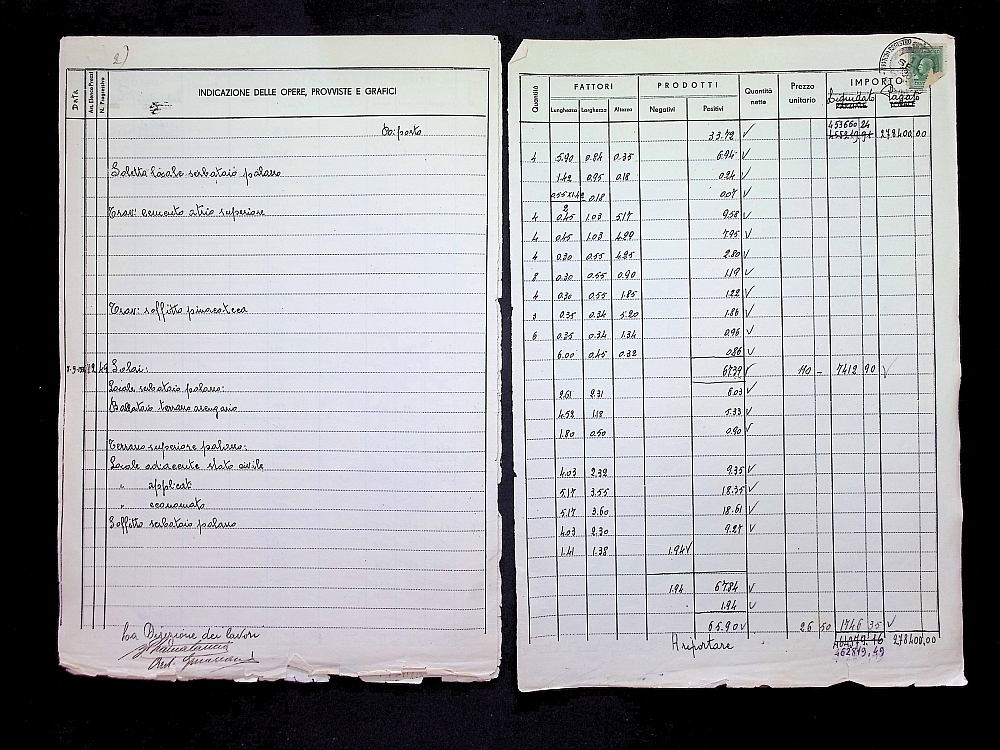 2)
DATA
Art. Elenco Prezzi
N. Progressivo
INDICAZIONE DELLE OPERE, PROVVISTE E GRAFICI
Riporto
Soletta locale serbatoio palazzo
Travi cemento atrio superiore
Travi soffitto pinacoteca
12 49 Solai:
Locale serbatoio palazzo:
Ballatoio terrazzo arengario
Terrazzo superiore palazzo:
Locale adiacente stato civile
" applicati
" economato
Soffitto serbatoio palazzo
La Direzione dei lavori
Quantità
FATTORI
Lunghezza Larghezza Altezza
PRODOTTI
Negativi Positivi
Quantità nette
Prezzo unitario
IMPORTO
Liquidato Pagato
453660 24
33.72 √ 278400,00
4 5.90 0.84 0.35 6.94 √
1.42 0.95 0.18 0.24 √
0.55x1.42 0.18 0.07 √
2
4 0.45 1.03 5.17 9.58 √
4 0.45 1.03 4.29 7.95 √
4 0.30 0.55 4.25 2.80 √
8 0.30 0.55 0.90 1.19 √
4 0.30 0.55 1.85 1.22 √
3 0.35 0.34 5.20 1.86 √
6 0.35 0.34 1.34 0.96 √
6.00 0.45 0.32 0.86 √
67.39 √ 110 - 7412 90 √
2.61 2.31 6.03 √
4.52 1.18 5.33 √
1.80 0.50 0.90 √
4.03 2.32 9.35 √
5.17 3.55 18.35 √
5.17 3.60 18.61 √
4.03 2.30 9.27 √
1.41 1.38 1.94 √
1.94 67.84 √
1.94 √
65.90 √ 26 50 1746 35 √
A riportare 278400,00
462819,49